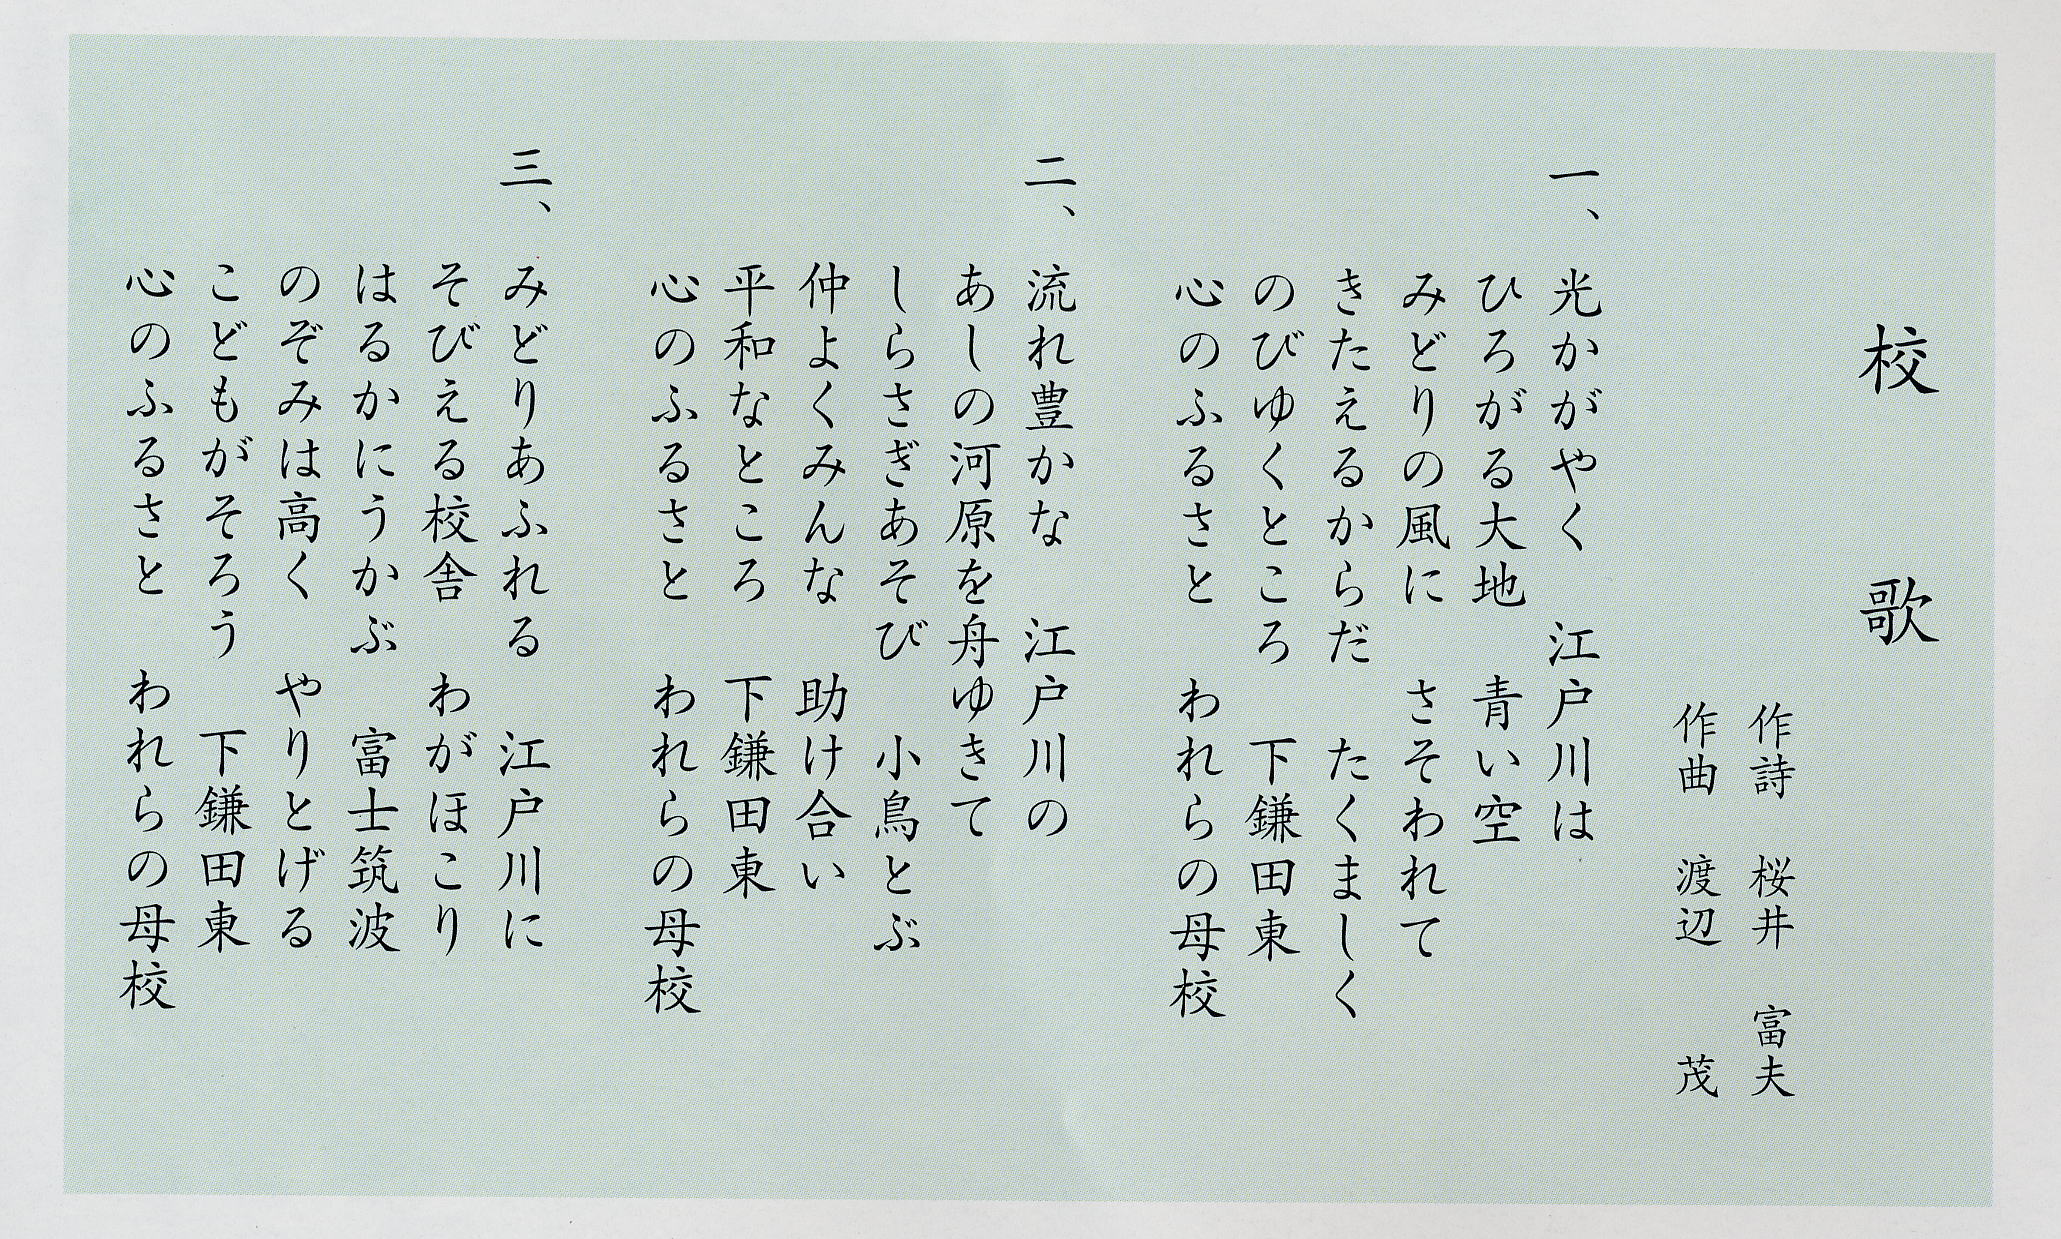 校歌
作詩　桜井　富夫
作曲　渡辺　茂
一、光かがやく　江戸川は
ひろがる大地　青い空
みどりの風に　さそわれて
きたえるからだ　たくましく
のびゆくところ　下鎌田東
心のふるさと　われらの母校
二、流れ豊かな　江戸川の
あしの河原を舟ゆきて
しらさぎあそび　小鳥とぶ
仲よくみんな　助け合い
平和なところ　下鎌田東
心のふるさと　われらの母校
三、みどりあふれる　江戸川に
そびえる校舎　わがほこり
はるかにうかぶ　富士筑波
のぞみは高く　やりとげる
こどもがそろう　下鎌田東
心のふるさと　われらの母校